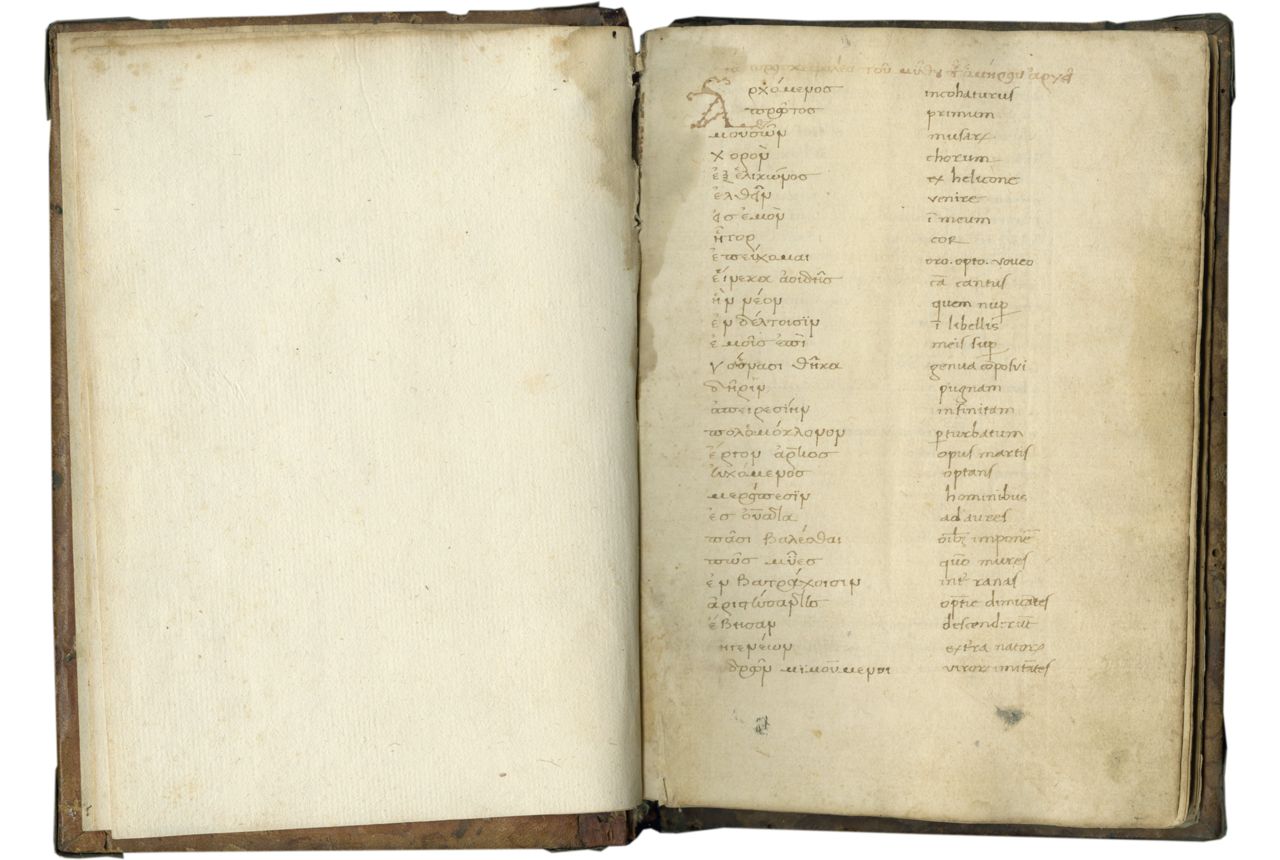 τοῦ
Ἀρχόμενος incohaturus
πρῶτος primum
μουσῶν musaꝝ
χορὸν chorum
ἐξ ἑλικῶνος ex helicone
ἐλθεῖν venire
εἰς ἐμὸν ī meum
ἦτορ cor
ἐπεύχομαι oro. opto. voveo
εἵνεκα ἀοιδῆς cā cantus
ἣν νέον quem nuꝑ
ἐν δέλτοισϊν ī libellis
ἐμοῖς ἐπὶ meis suꝑ
γούνασι θῆκα genua
δῆριν pugnam
ἀπειρεσίην infinitam
πολύμόκλονον ꝑturbatum
ἔργον ἄρηος opus martis
εὐχόμενος optans
μερόπεσϊν hominibus
ἐς οὔατα ad aures
πᾶσι βαλέσθαι oīb; imponēē
πῶς μῦες quō mures
ἐν βατράχοισιν int ranas
ἀριστεύσαντες
ἔβησαν descenderūt
γηγενέων extra natoꝝ
ἀνδρῶν μιμούμενοι viroꝝ imitātes